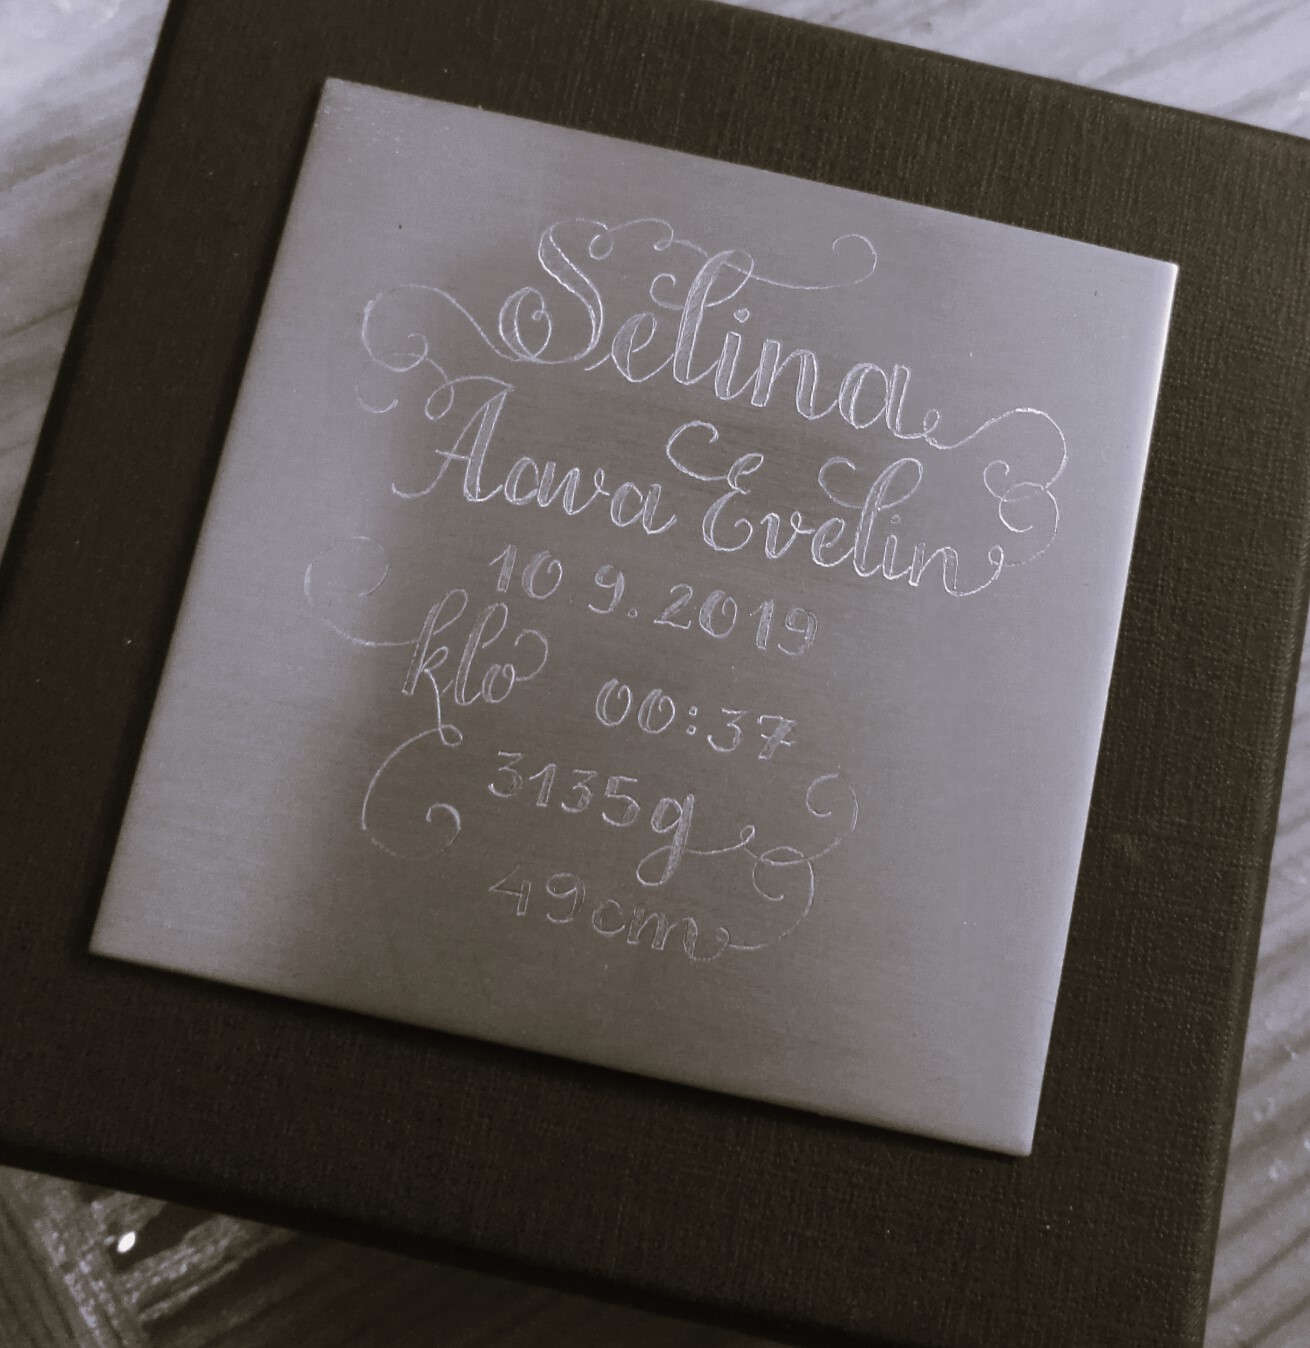 Selina
Aava Evelin
10 9.2019
klo 00:37
3135g
49cm